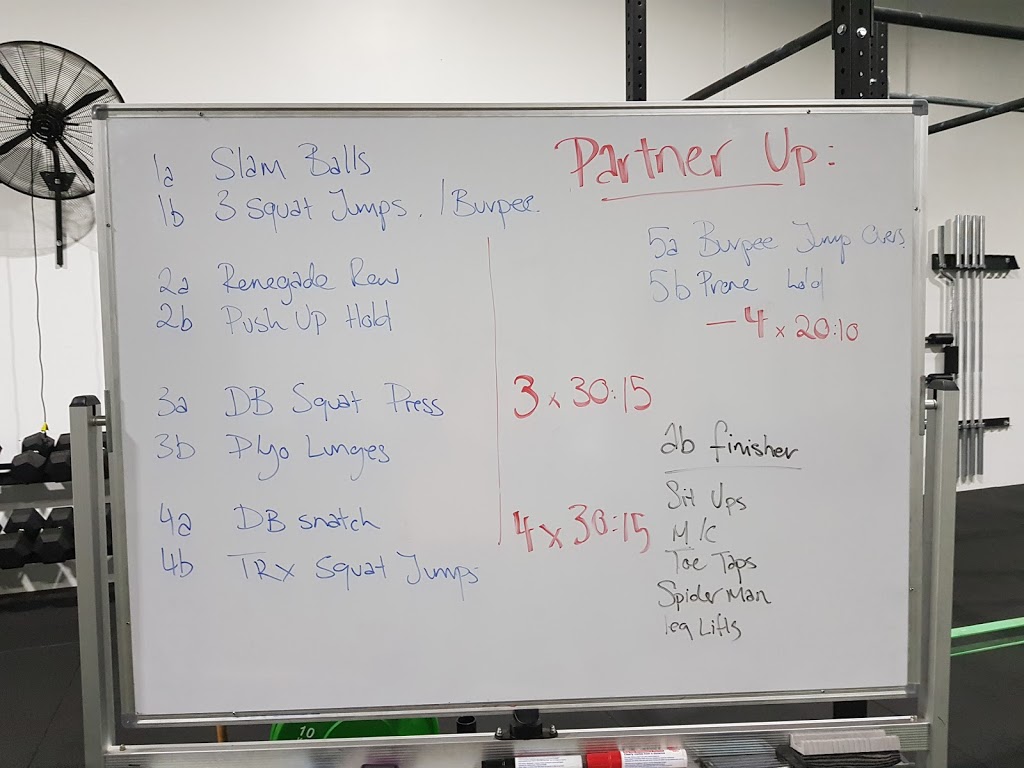 1a Slam Balls
1b 3 Squat Jumps. /Burpee.
2a Renegade Row
2b Push Up Hold
3a DB Squat Press
3b Plyo Lunges
4a DB snatch
4b TRX Squat Jumps
3 x 30:15
4 x 30:15
Partner Up:
5a Burpee Jump Overs
5b Prone hold
- 4 x 20:10
ab finisher
Sit Ups
M/C
Toe Taps
Spider Man
leg Lifts
10